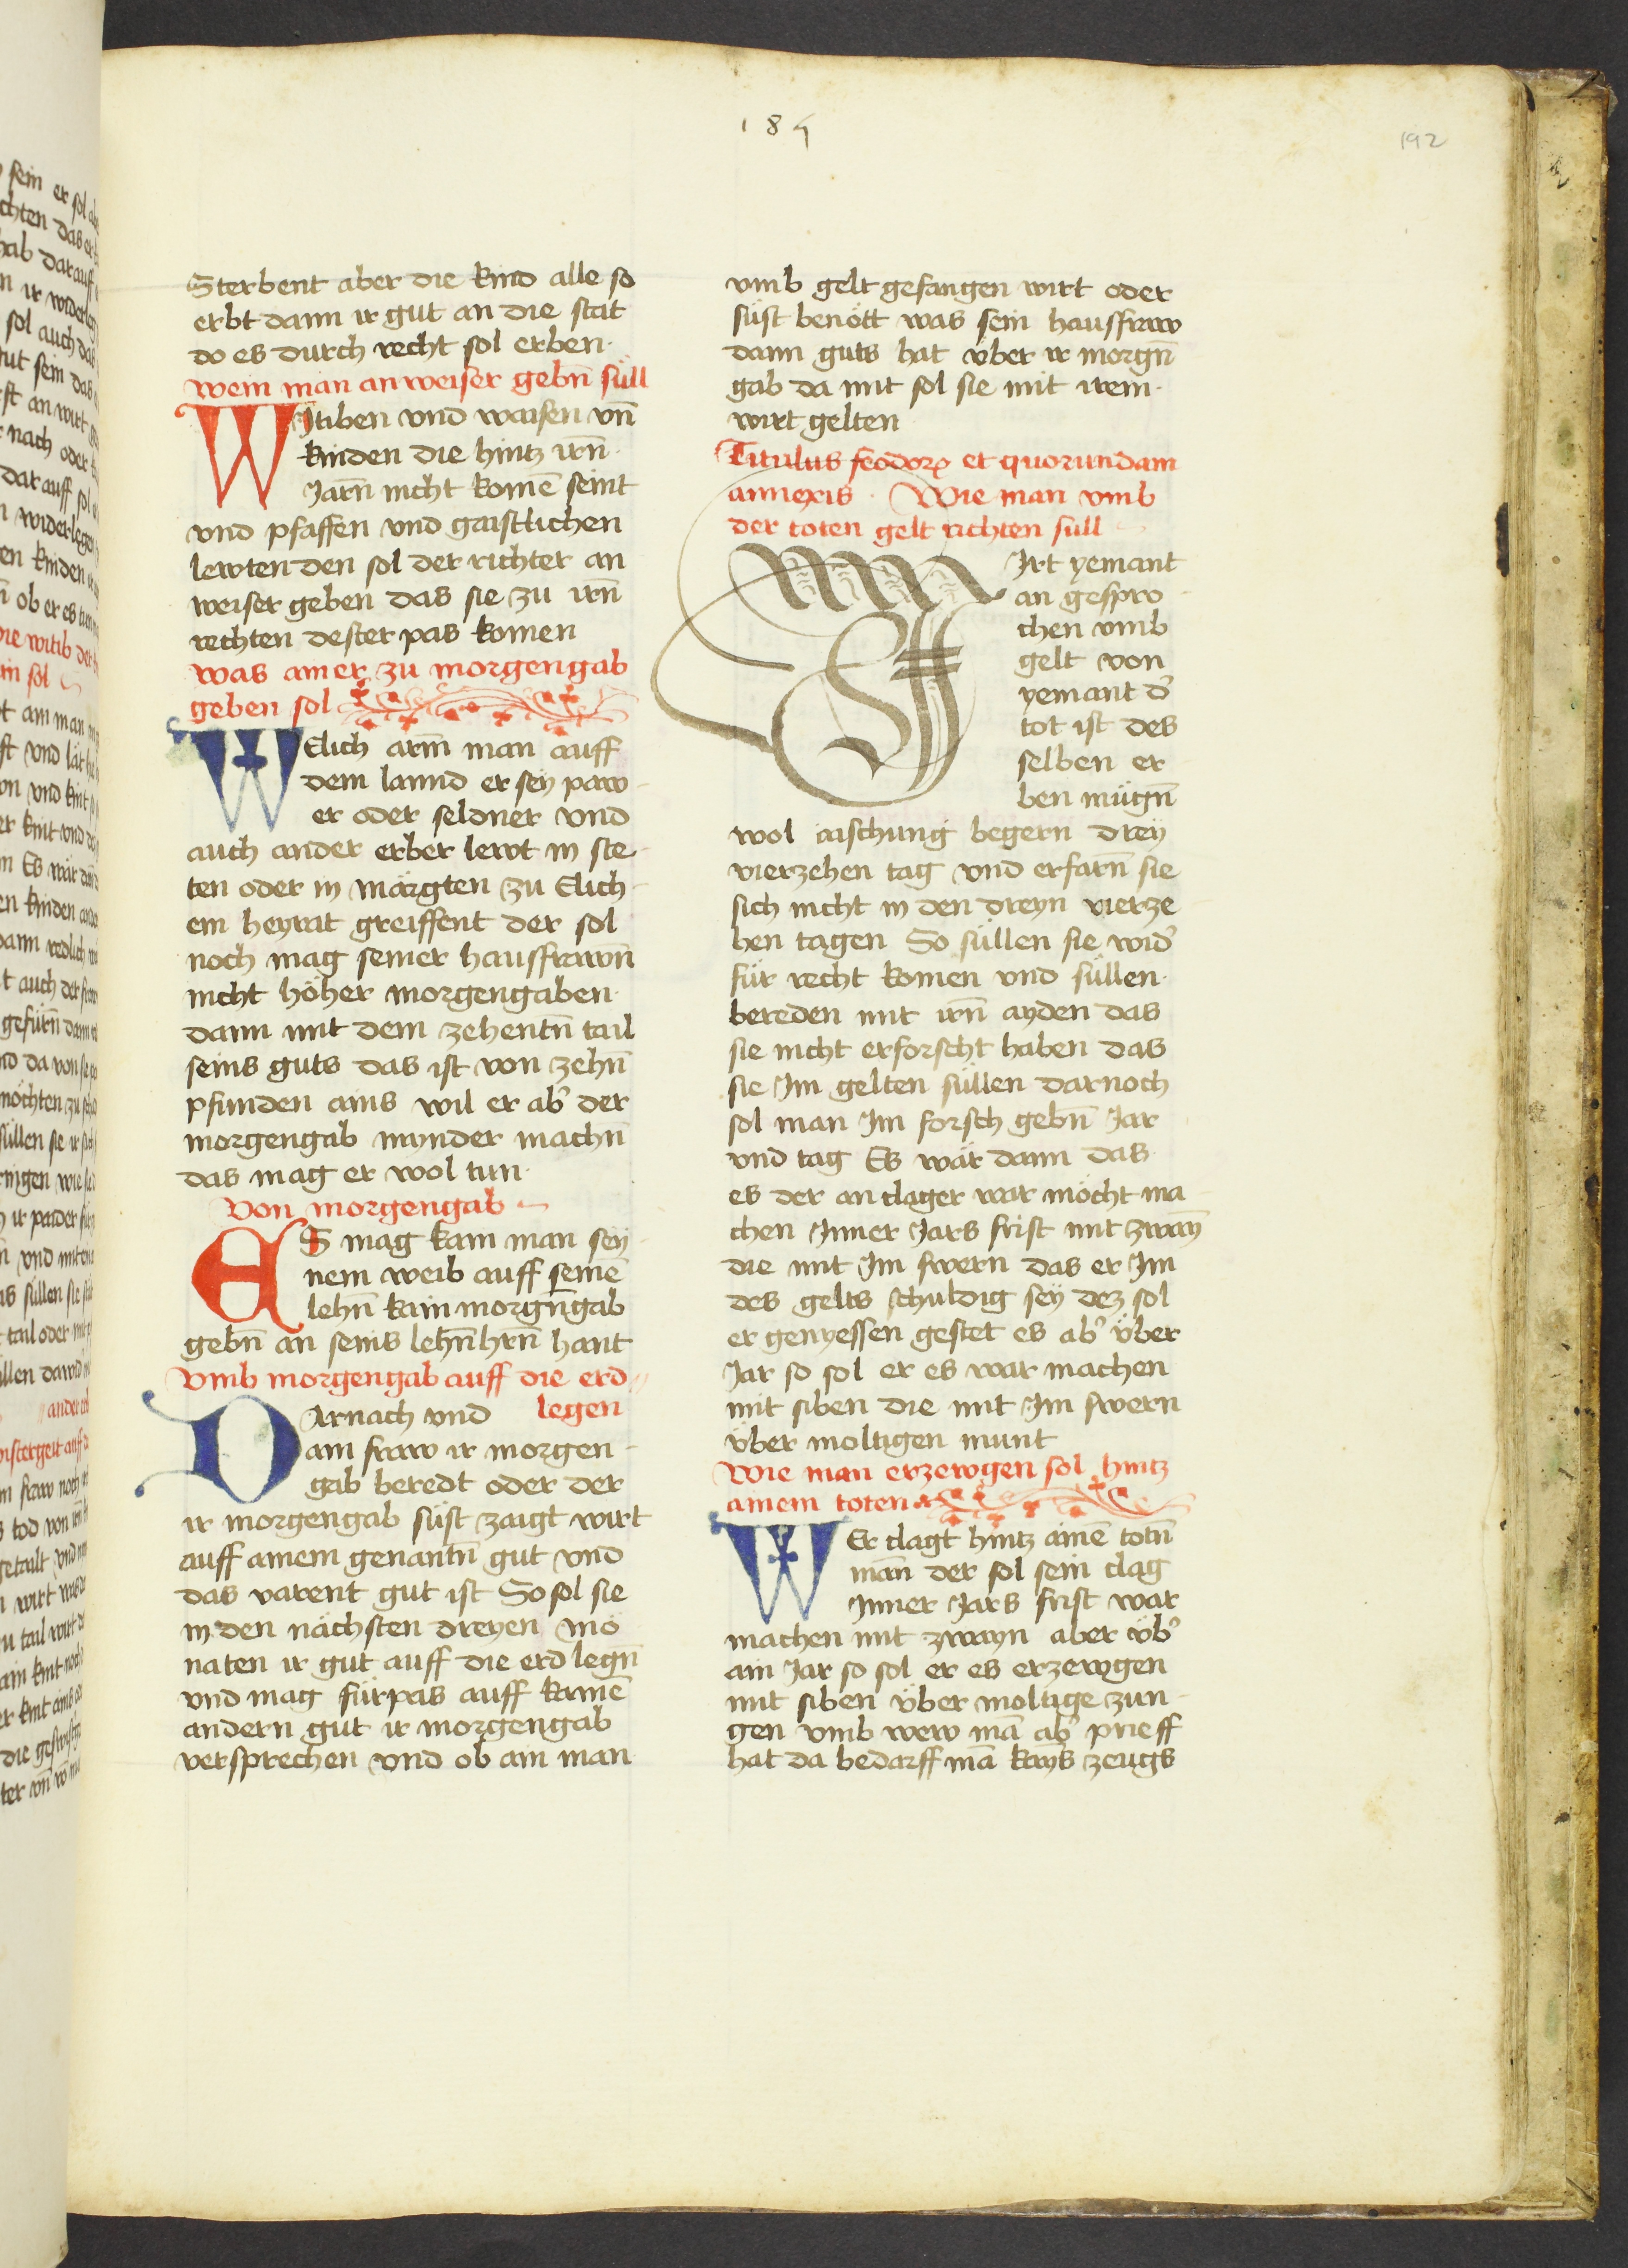 185
192
Sterbent aber die kind alle so
erbt dann ir gut an die stat
do es durch recht sol erben
wem man anweiser gebn̄ süll
WItiben vnd waisen vn̄
kinden die hintz irn̄
Jarn̄ nicht komē seint
vnd pfaffen vnd gaistlichen
lewten den sol der richter an
weiser geben das sie zu irn̄
rechten dester pas komen
was ainer zu morgengab
geben sol
WElich arm̄ man auff
dem lannd er sey paw
er oder seldner vnd
auch ander erber lewt in ste
ten oder in märgten zu Elich
em heyrat greiffent der sol
noch mag seiner hausfrawn̄
nicht höher morgengaben
dann mit dem zehentn̄ tail
seins guts das ist von zehn̄
pfunden ains wil er ab̓ der
morgengab mynder machn̄
das mag er wol tun
Von morgengab
ES mag kain man sey
nem weib auff seinē
lehn̄ kain morgn̄gab
gebn̄ an seins lehn̄hrn̄ hant
Vmb morgengab auff die erd
legen
DArnach vnd
ain fraw ir morgen
gab beredt oder der
ir morgengab süst zaigt wirt
auff ainem genantn̄ gut vnd
das varent gut ist So sol sie
in den nächsten dreyen mo
naten ir gut auff die erd legn̄
vnd mag fürpas auff kainē
andern gut ir morgengab
versprechen vnd ob ain man
vmb gelt gefangen wirt oder
süst benött was sein hausfraw
dann guts hat über ir morgn̄
gab da mit sol sie mit irem
wirt gelten
Titulus feodorꝝ et quorundam
annexis Wie man vmb
der toten gelt richten süll
WIrt yemant
an gespro
chen vmb
gelt von
yemant d̓
tot ist des
selben er
ben mügn̄
wol aischung begern drey
vierzehen tag vnd erfarn̄ sie
sich nicht in den dreyn vierze
hen tagen So süllen sie wid̓
für recht komen vnd süllen
bereden mit irn̄ ayden das
sie nicht erforscht haben das
sie Im gelten süllen darnoch
sol man Im forsch gebn̄ Jar
vnd tag Es wär dann das
es der anclager war möcht ma
chen Inner Jars frist mit zwayn̄
die mit Im swern das er Im
des gelts schuldig sey dez sol
er genyessen gestet es ab̓ über
Jar so sol er es war machen
mit siben die mit Im swern
über moltigen munt
Wie man erzewgen sol hintz
ainem toten
WEr clagt hintz ainē totn̄
man̄ der sol sein clag
Inner Jars frist war
machen mit zwayn aber üb̓
ain Jar so sol er es erzewgen
mit siben über moltige zun
gen vmb wew mā ab̓ prieff
hat da bedarff mā kayns zeugs